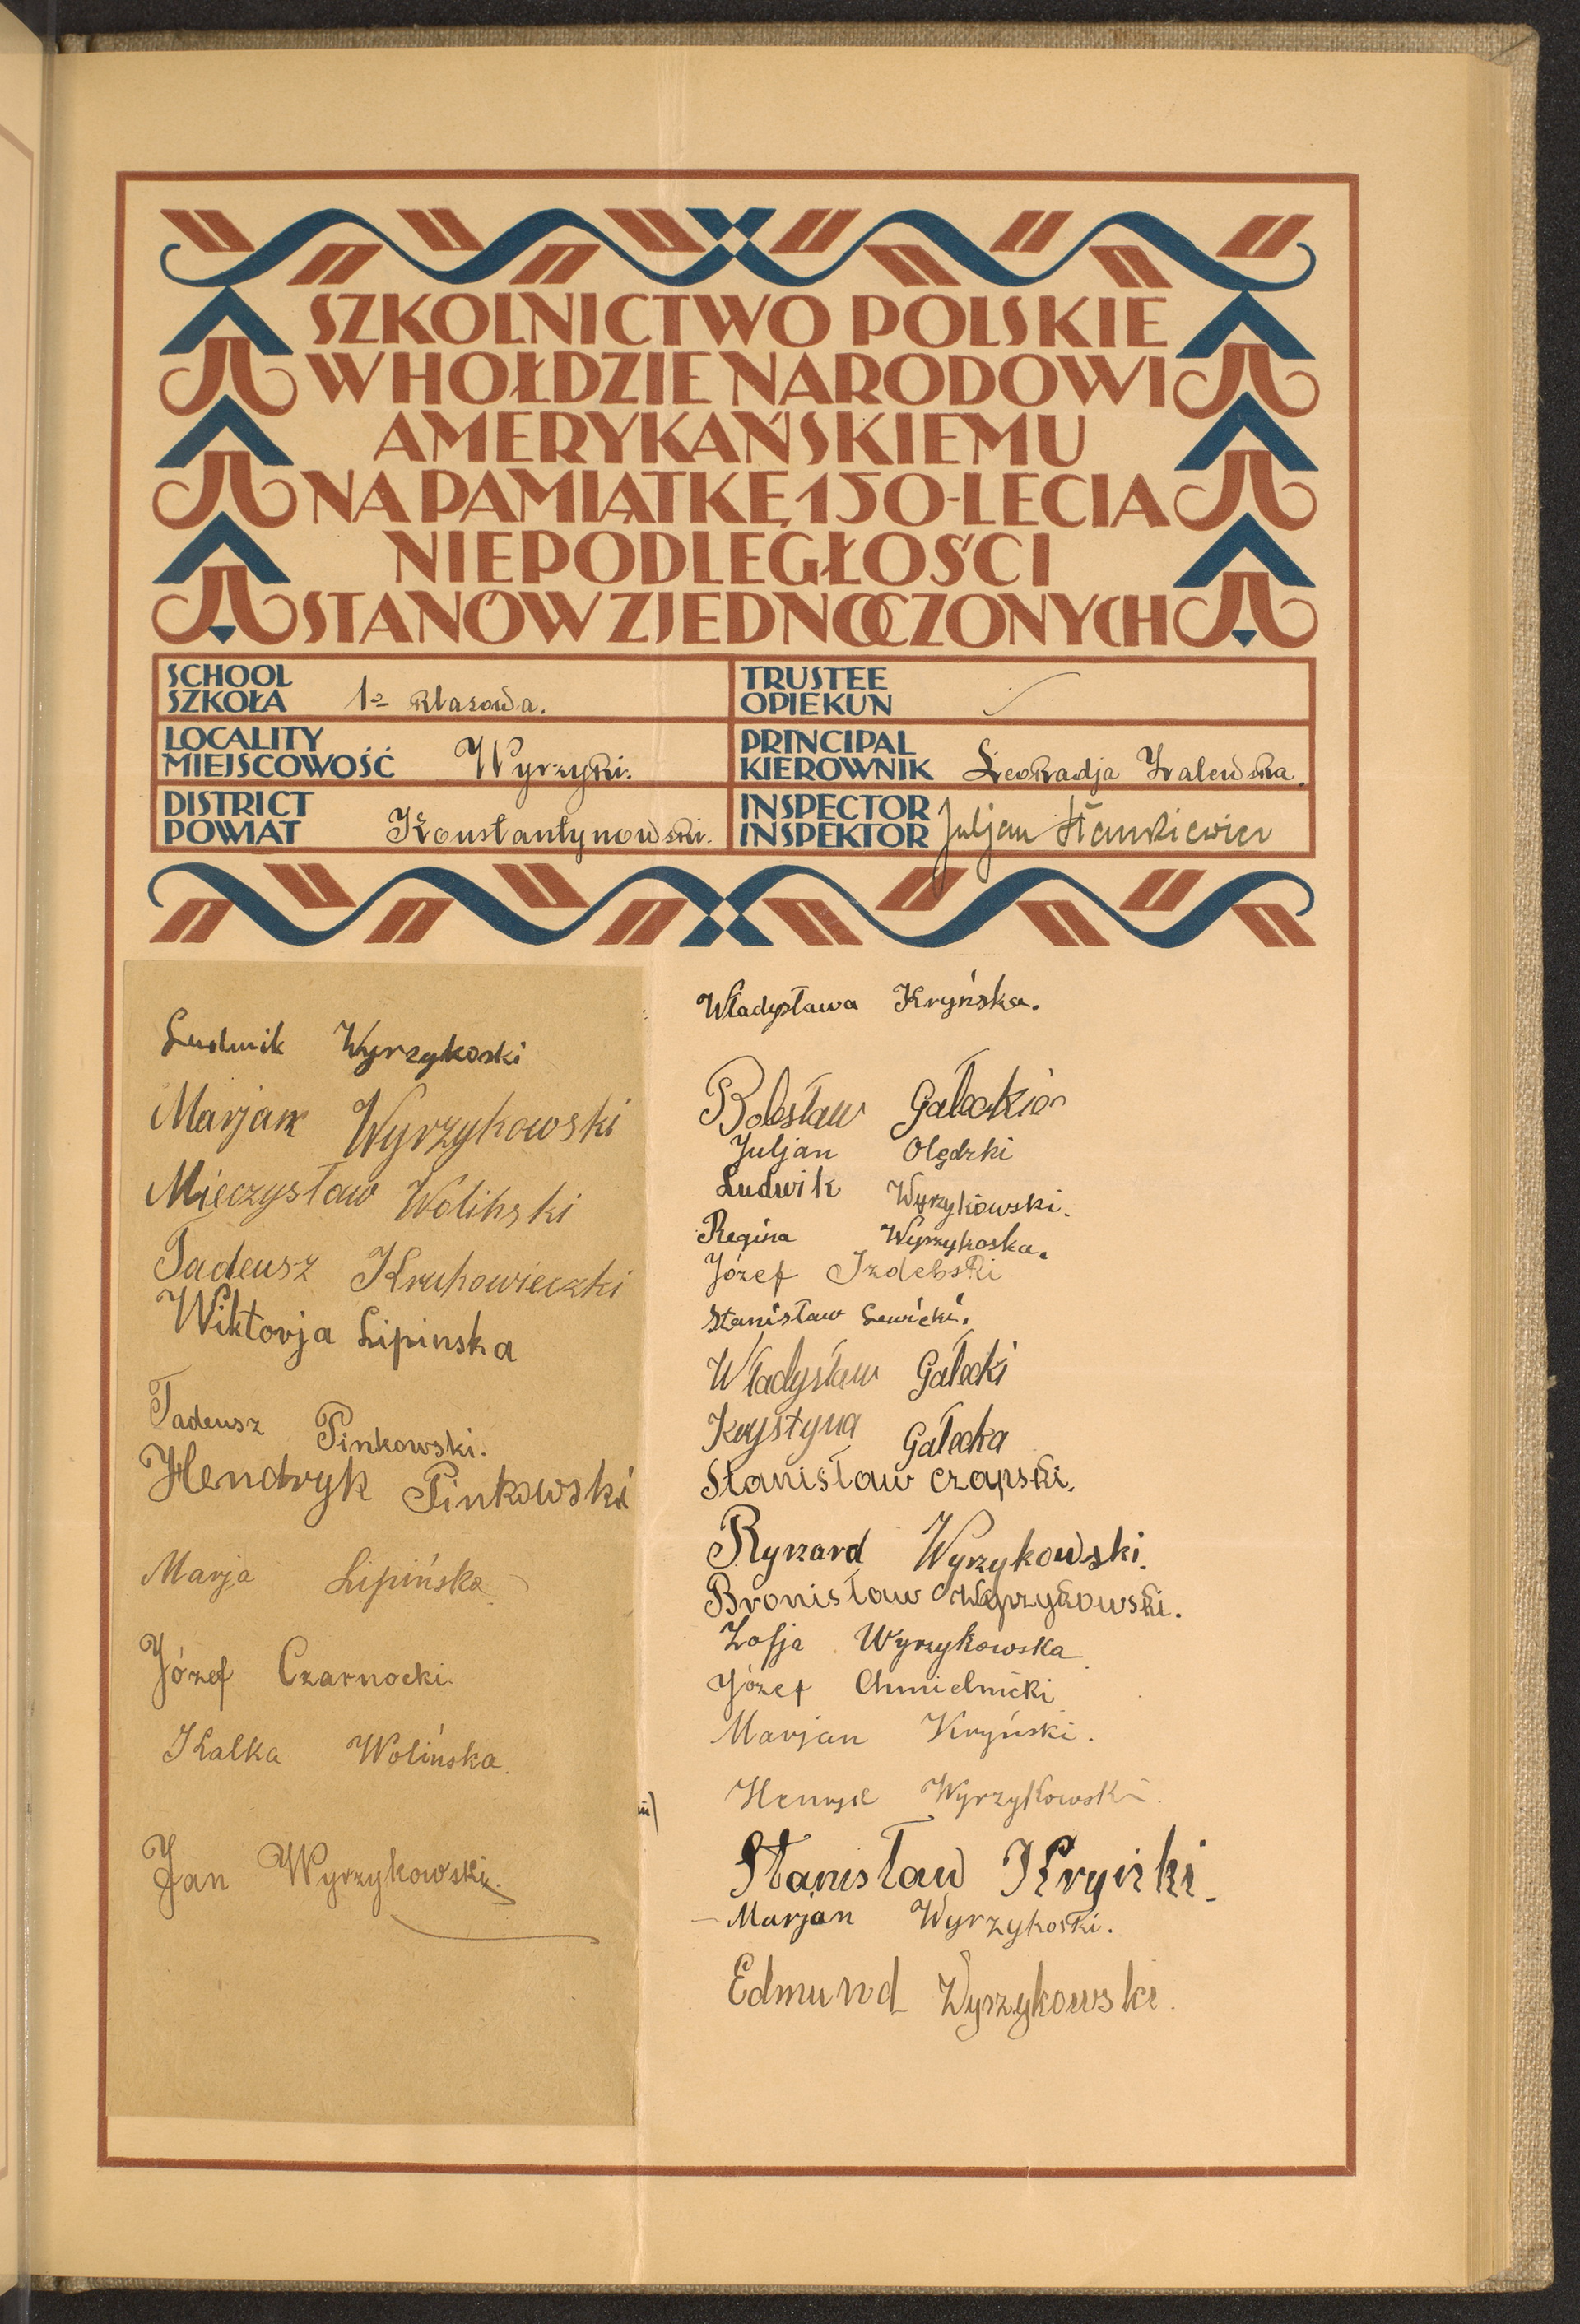 SZKOLNICTWO POLSKIE
W HOŁDZIE NARODOWI
AMERYKAŃSKIEMU
NA PAMIĄTKĘ 150-LECIA
NIEPODLEGŁOŚCI
STANÓW ZJEDNOCZONYCH
SCHOOL
SZKOŁA 1o klasowa.
TRUSTEE
OPIEKUN
LOCALITY
MIEJSCOWOŚĆ Wyrzyki.
PRINCIPAL
KIEROWNIK Leokadja Zalewska.
DISTRICT
POWIAT Konstantynowski.
INSPECTOR
INSPEKTOR Juljan Stankiewicz
Ludwik Wyrzykoski
Marjan Wyrzykowski
Mieczysław Wolihski
Tadeusz Kruhowieczki
Wiktorja Lipinska
Tadeusz Pinkowski.
Hendryk Pinkowski
Marja Lipińska
Józef Czarnocki.
Halka Wolińska.
Jan Wyrzykowski.
Władysława Kryńska.
Bolesław Gałecki
Juljan Olędzki
Ludwik Wyrzykowski.
Regina Wyrzykoska.
Józef Izdebski
Stanisław Lewicki.
Władysław Gałecki
Krystyna Gałecka
Stanisław Czapski.
Ryszard Wyrzykowski.
Bronisław Wyrzykowski.
Zofja Wyrzykowska
Józef Chmielnicki
Marjan Kryński.
Henryk Wyrzykowski.
Stanisław Kryński.
Marjan Wyrzykoski.
Edmund Wyrzykowski.